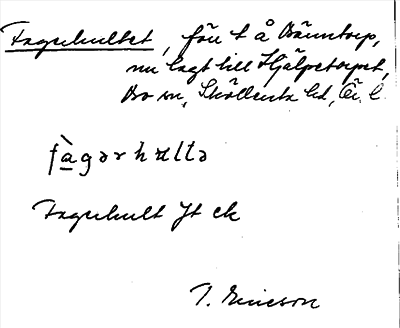 Fagerhultet, förr t å Bänntorp,
nu lagt till Hjälpetorpet,
Bo sn, Sköllersta hd, Ör. l.
fàgərhɯltə
Fagerhult Jt ek
T. Ericson